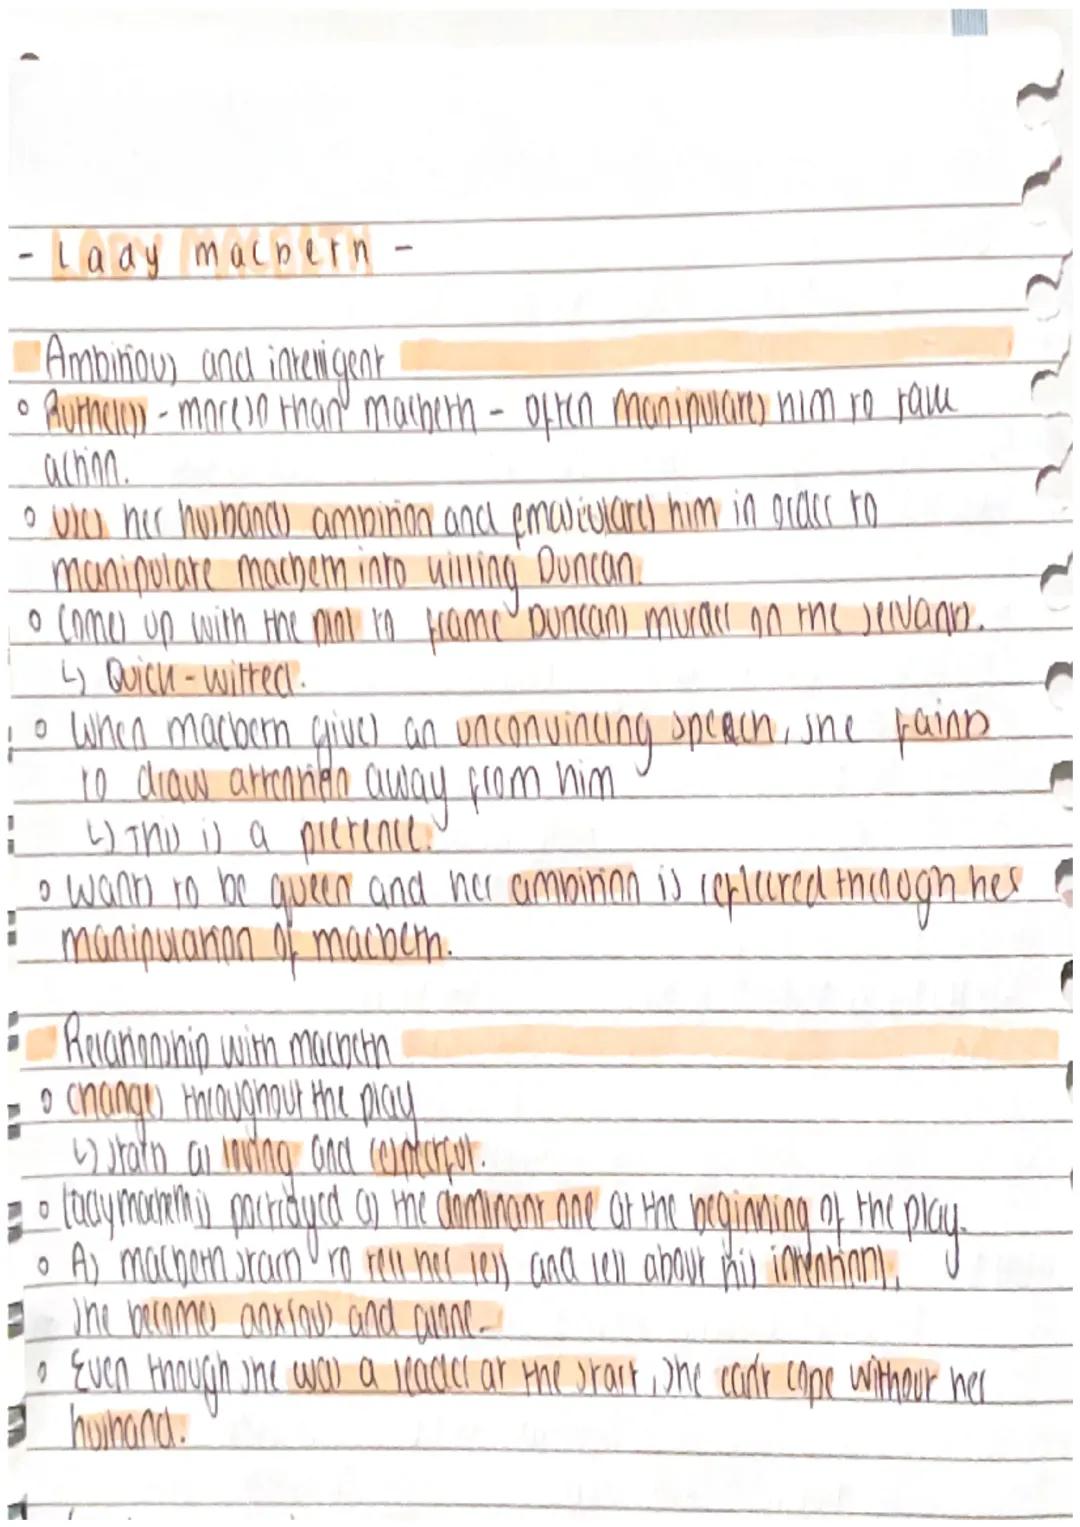 - Lady macbeth -
Ambitious and intelligent
Ruthless - moreso than macbeth - often manipulates him to take
action.
uses her husbands ambition and emasculates him in order to
manipulate macbeth into killing Duncan.
Comes up with the plot to frame Duncans murder on the servants.
↳ Quick-witted.
When macbeth gives an unconvincing speech, she faints
to draw attention away from him
↳ This is a pretence.
Wants to be queen and her ambition is reflected through her
manipulation of macbeth.
Relationship with macbeth
changes throughout the play
↳ starts as loving and respectful.
lady macbeth is portrayed as the dominant one at the beginning of the play.
As macbeth starts to tell her less and less about his intentions,
she becomes anxious and alone.
Even though she was a leader at the start, she can't cope without her
husband.